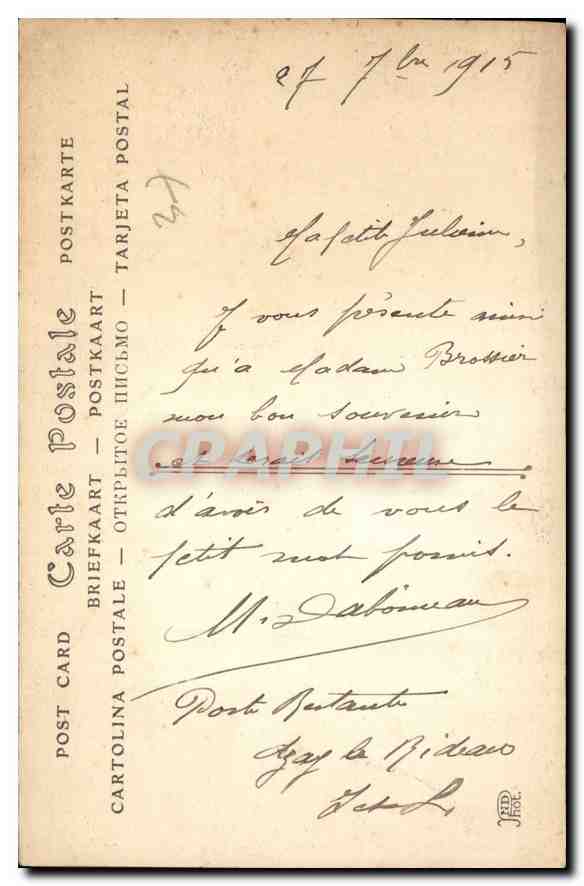 27 7bre 1915
Ma petite
Je vous présente ainsi
qu'a Madame Brossier
mon bon souvenir
et serait heureuse
d'avoir de vous le
petit mot promis.
M.
Poste Restante
Azay le Rideau
I et L
POST CARD Carte Postale POSTKARTE
BRIEFKAART — POSTKAART
CARTOLINA POSTALE — ОТКРЫТОЕ ПИСЬМО — TARJETA POSTAL
CPARAMA
ND
Phot.